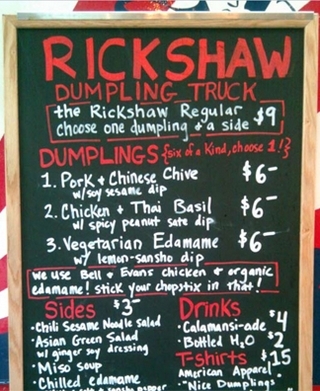 RICKSHAW
DUMPLING TRUCK
the Rickshaw Regular $9
choose one dumpling + a side
DUMPLINGS {six of a kind, choose 1!}
1. Pork + Chinese Chive $6-
w/ soy sesame dip
2. Chicken + Thai Basil $6-
w/ spicy peanut sate dip
3. Vegetarian Edamame $6-
w/ lemon-sansho dip
we use Bell + Evans chicken + organic
edamame! stick your chopstix in that!
Sides $3-
· Chili Sesame Noodle Salad
· Asian Green Salad
w/ ginger soy dressing
· Miso Soup
· Chilled edamame
Drinks
· Calamansi-ade $4
· Bottled H2O $2
T-shirts $15
American Apparel
"Nice Dumplings